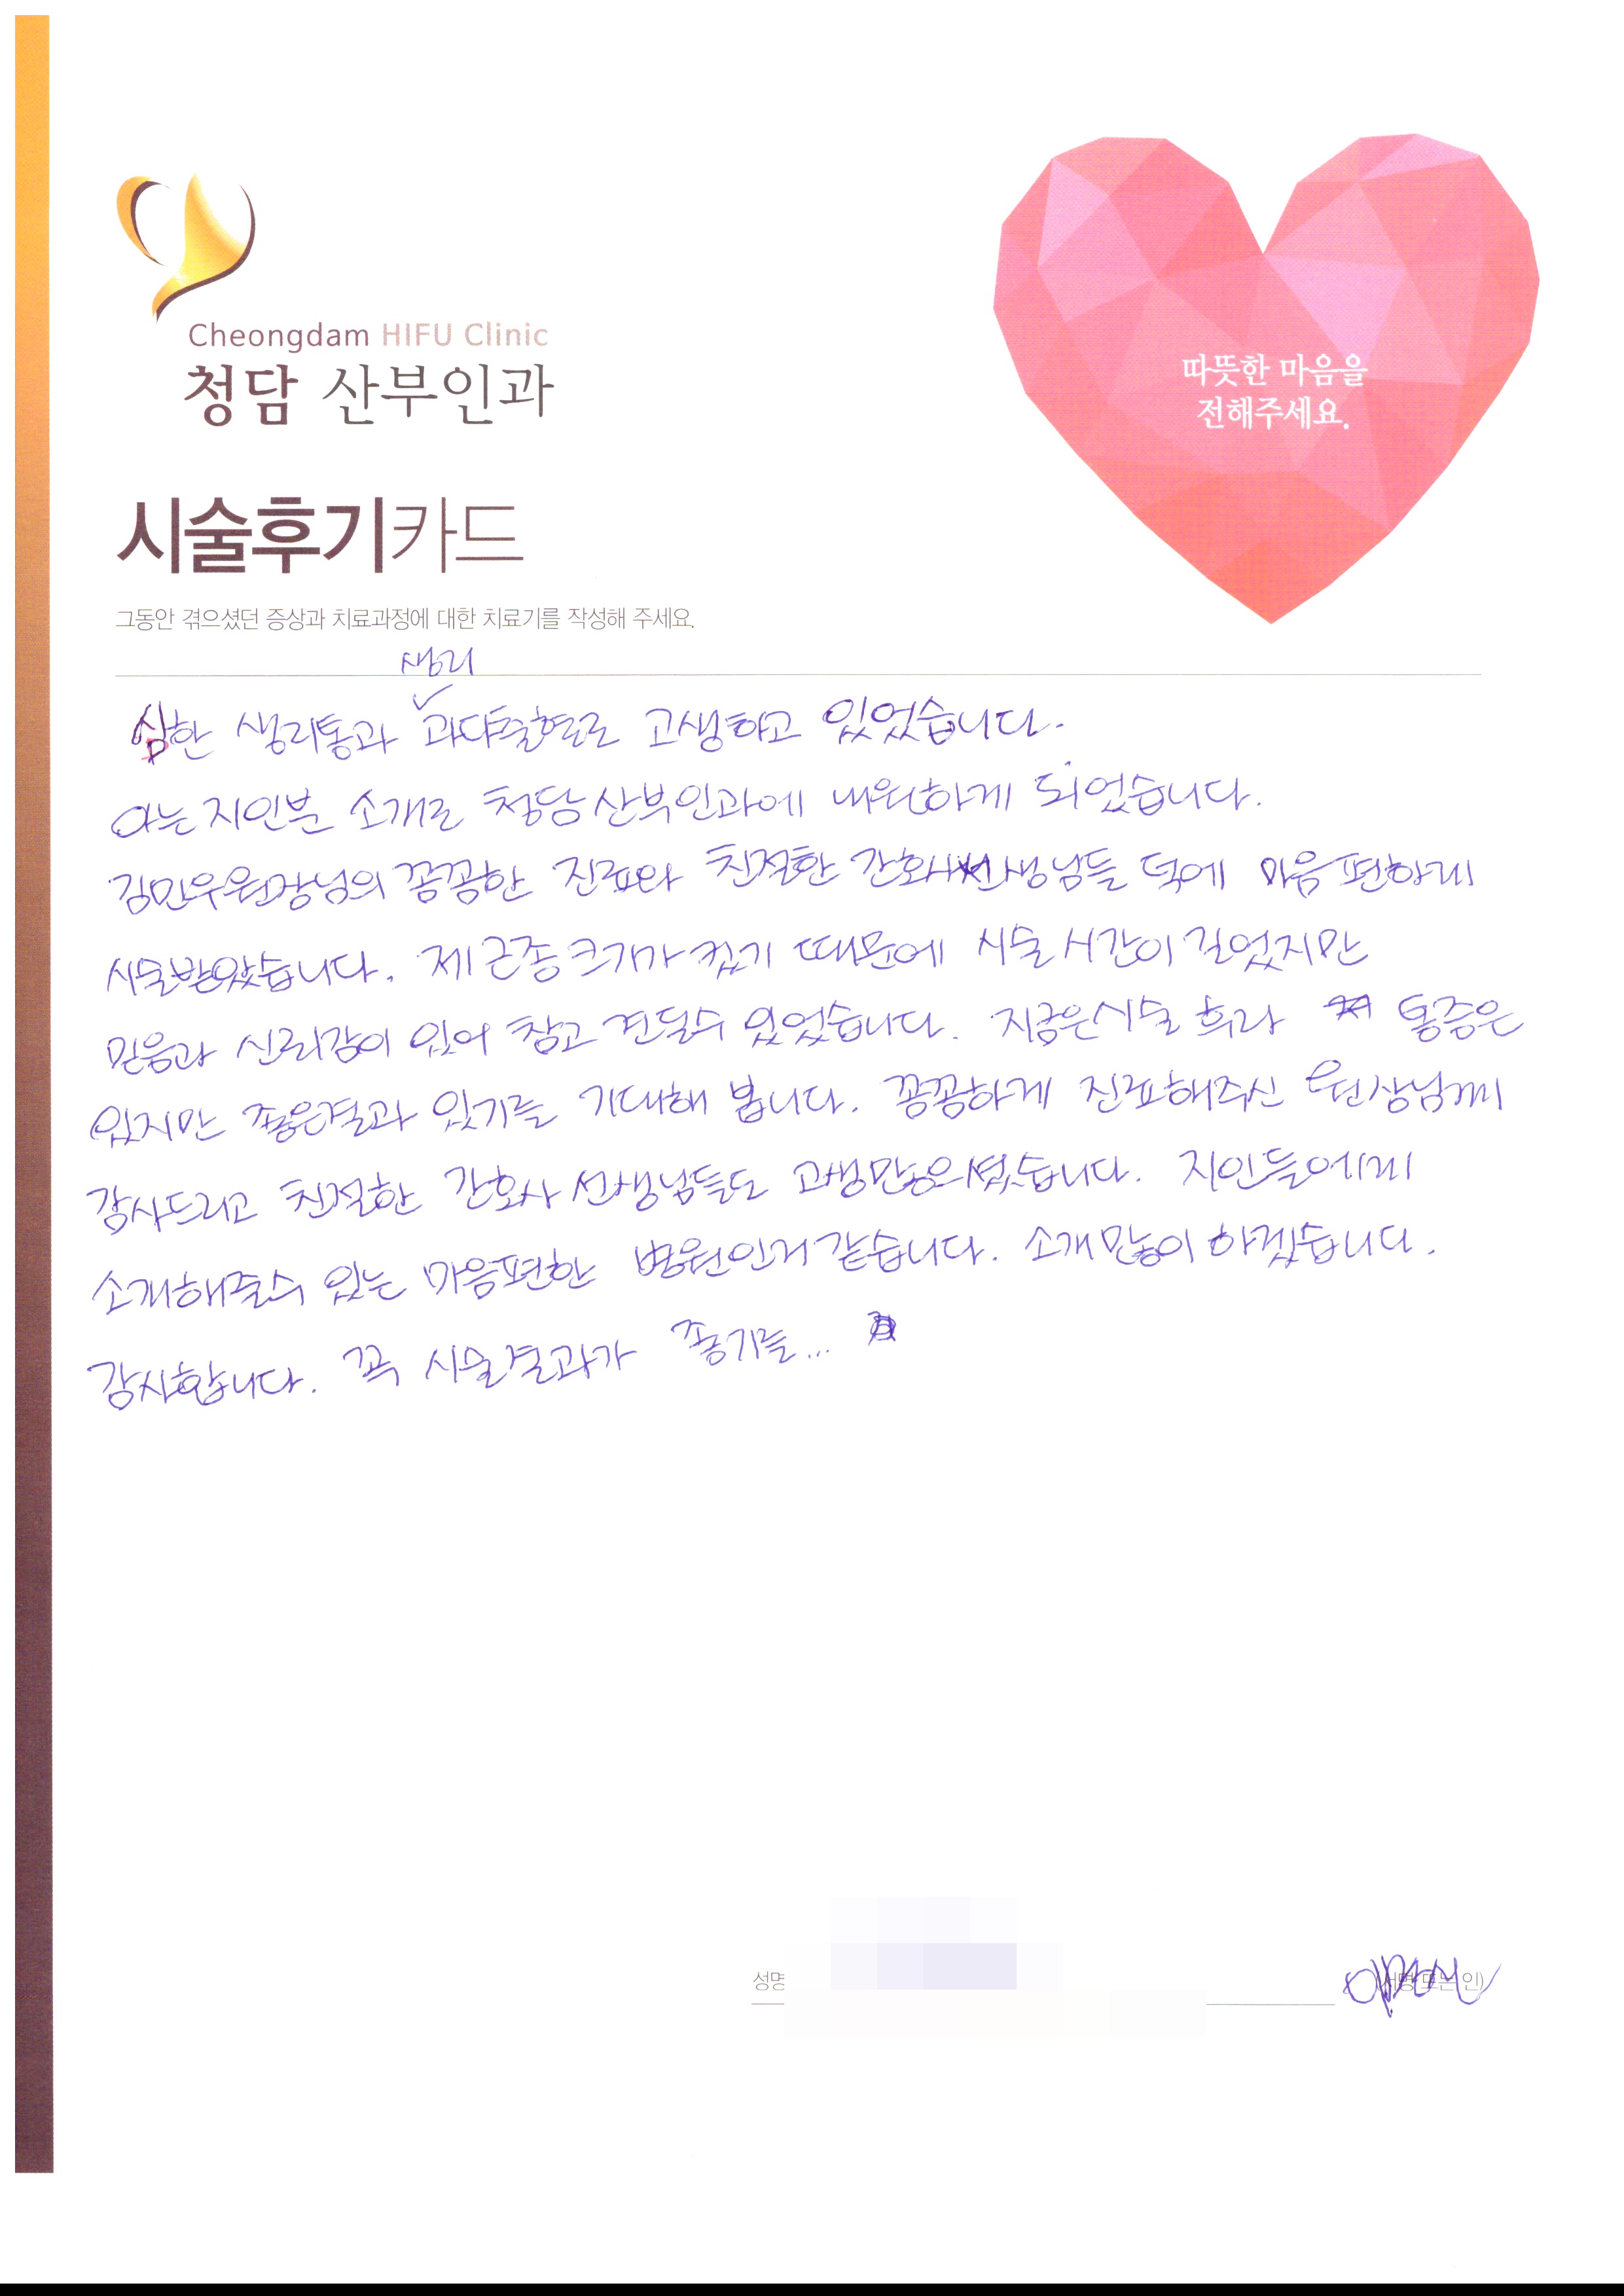 Cheongdam HIFU Clinic
청담 산부인과
따뜻한 마음을
전해주세요.
시술후기카드
그동안 겪으셨던 증상과 치료과정에 대한 치료기를 작성해 주세요.
생리
심한 생리통과 과다출혈로 고생하고 있었습니다.
아는 지인분 소개로 청담산부인과에 내원하게 되었습니다.
김민우원장님의 꼼꼼한 진료와 친절한 간호사선생님들 덕에 마음 편하게
시술받았습니다. 제 근종 크기가 컸기 때문에 시술 시간이 길었지만
믿음과 신뢰감이 있어 참고 견딜수 있었습니다. 지금은 시술 후라 통증은
있지만 좋은결과 있기를 기대해 봅니다. 꼼꼼하게 진료해주신 원장님께
감사드리고 친절한 간호사 선생님들도 고생많으셨습니다. 지인들에게
소개해줄수 있는 마음편한 병원인거 같습니다. 소개 많이 하겠습니다.
감사합니다. 꼭 시술결과가 좋기를...
성명
(서명 또는 인)